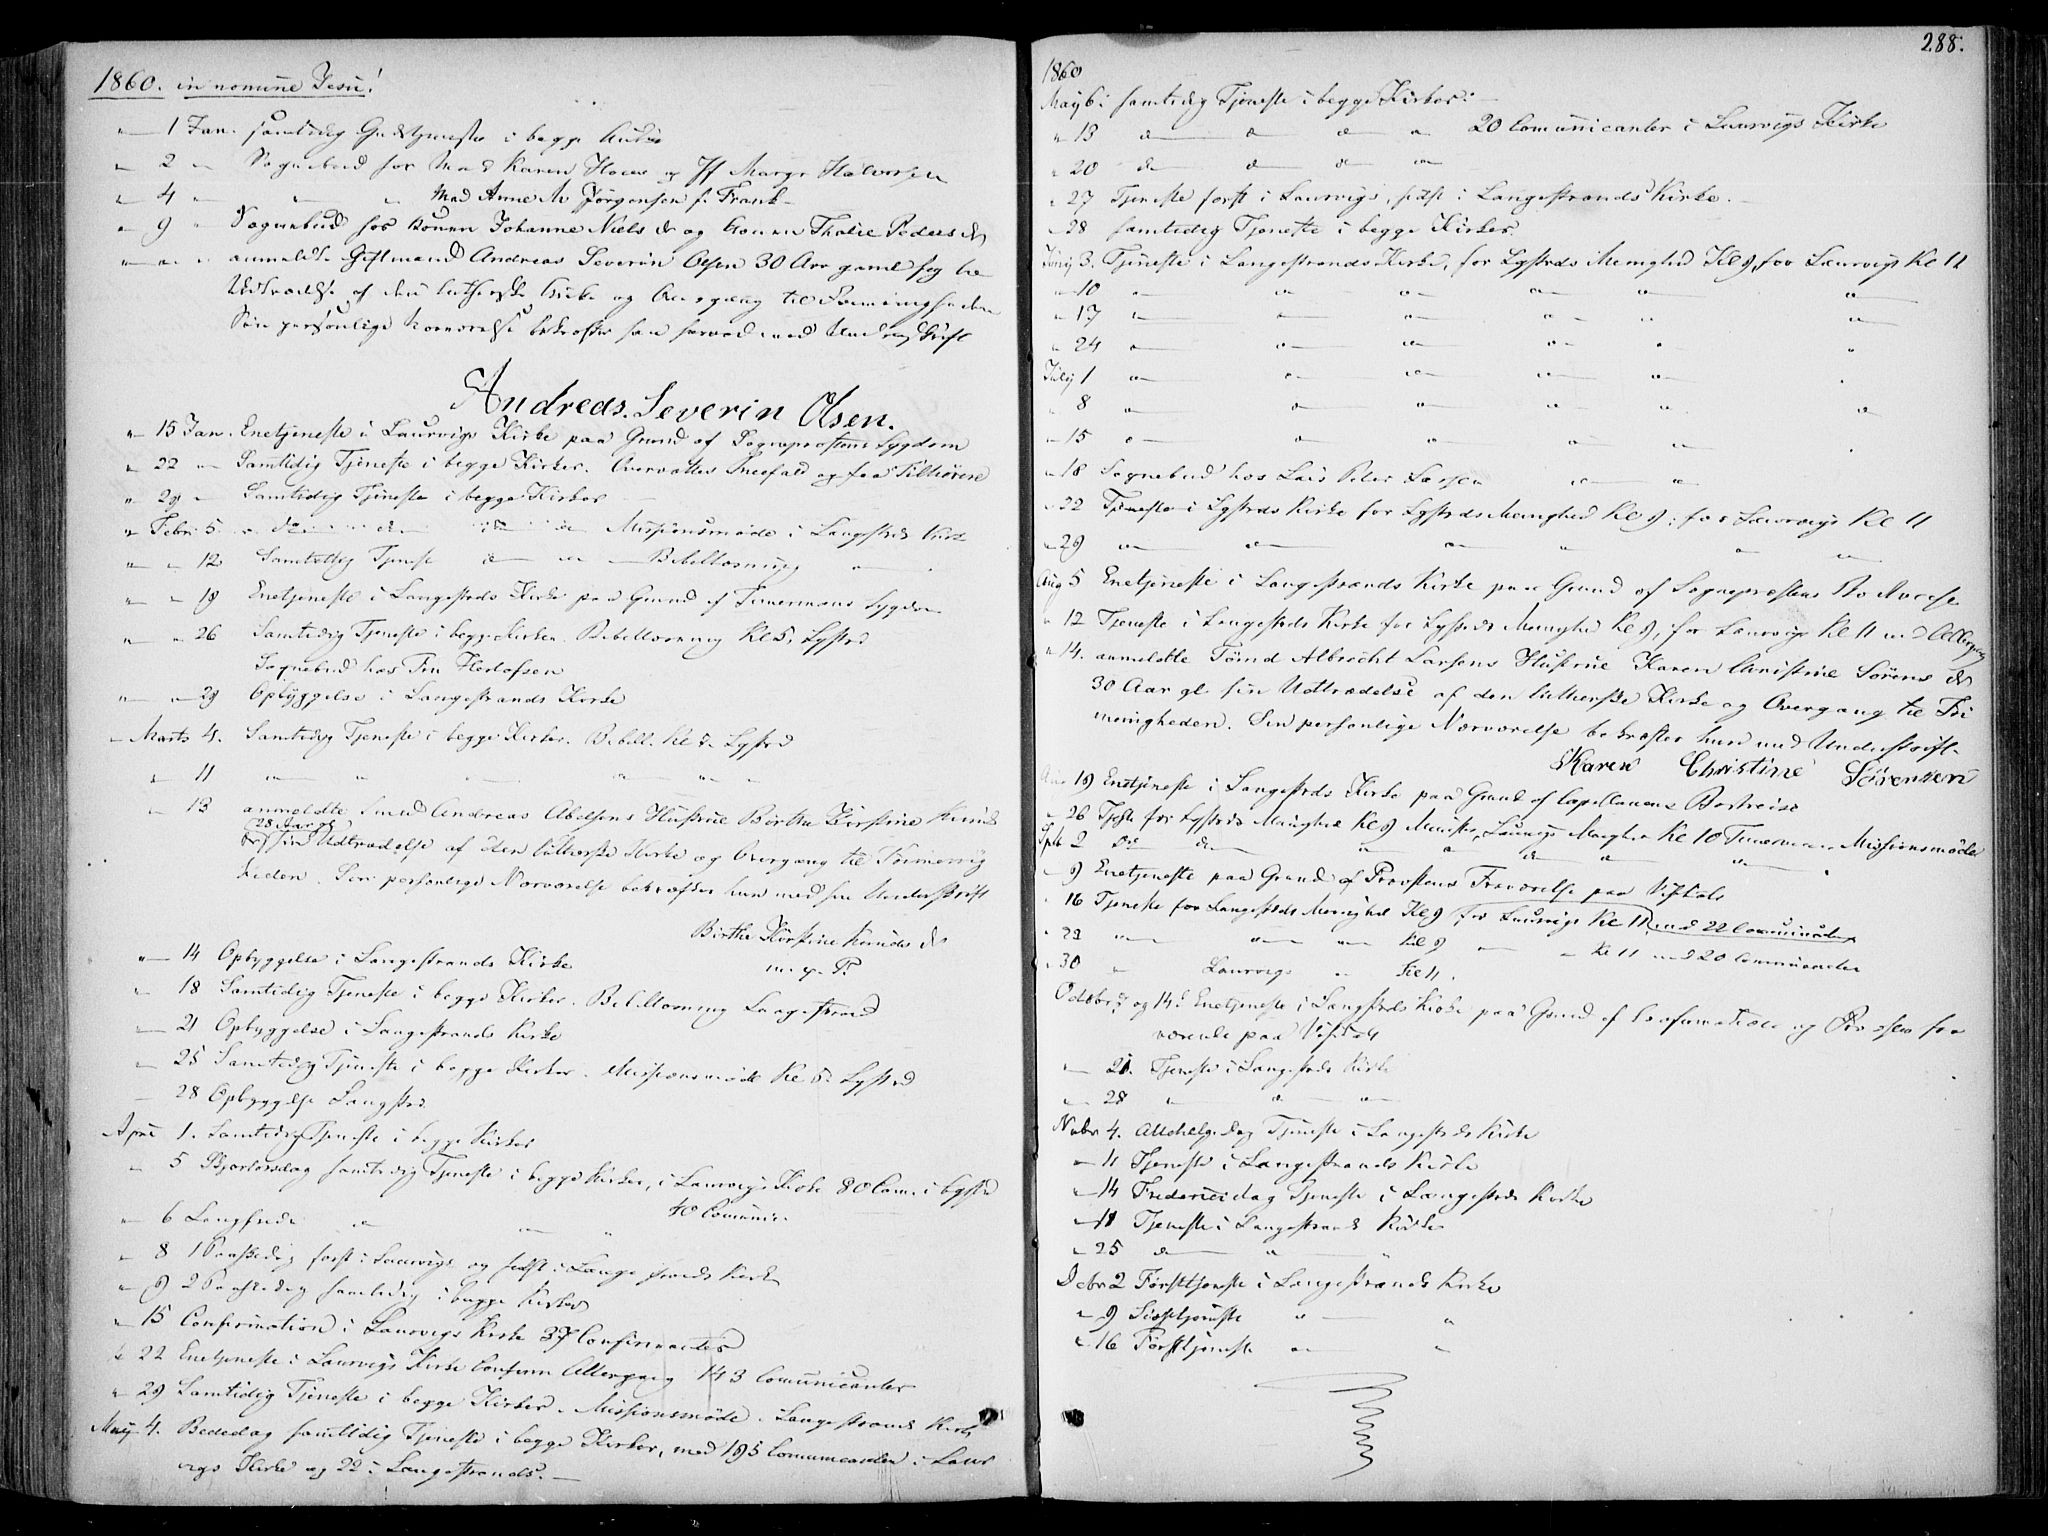 1860. in nomine Jesu!
" 1 Jan. samtidig Gudstjeneste i begge Kirker
" 2 " Sognebud hos Mad Karen og Jf Margr Halvorsen
" 4 " " " Mad Anne M Jørgensen f. Frank
" 9 " Sognebud hos Konen Johanne Niels D og Konen Thalie Peders D
" " " anmeldte Giftmand Andreas Severin Olsen 30 Aar gaml sig
Udtrædelse af den lutherske Kirke og Overgang til Frimenigheden
Sin personlige Nærværelse bekræfter han herved med Underskrift
Andreas Severin Olsen.
" 15 Jan. Enetjeneste i Laurvigs Kirke paa Grund af Sognepræstens Sygdom
" 22 " Samtidig Tjeneste i begge Kirker. Overvættes Sneefald og faa Tilhørere
" 29 " Samtidig Tjeneste i begge Kirker
" Febr 5. " Missionsmøde i Langestrds Kirke
" " 12 Samtidig Tjeneste " " Bibellæsning
" " 19 Enetjeneste i Langestrds Kirke paa Grund af Timermans Sygdom
" " 26 Samtidig Tjeneste i begge Kirker. Bibellæsning Kl 5. Lgstrd
Sognebud hos Fru Herlofsen
" " 29 Opbyggelse i Langestrands Kirke
" Marts 4. Samtidig Tjeneste i begge Kirker. Bibell. Kl 5. Lgstrd
" 11 " " " " " "
" 13 anmeldte Smed Andreas Abelsens Hustrue Birthe Kirstine Knuds
(28 Aar gl) sin Udtrædelse af den lutherske Kirke og Overgang til Frimenig
heden. Sin personlige Nærværelse bekræfter hun med sin Underskrift
Birthe Kirstine Knuds D
m. p. P.
" 14 Opbyggelse i Langestrands Kirke
" 18 Samtidig Tjeneste i begge Kirker. Bibellæsning Langestrand
" 21 Opbyggelse i Langestrands Kirke
" 25 Samtidig Tjeneste i begge Kirker. Missionsmøde Kl 5. Lgstrd
28 Opbyggelse Langstrd.
April 1. Samtidig Tjeneste i begge Kirker
" 5 Skjærtorsdag samtidig Tjeneste i begge Kirker, i Laurvigs Kirke 80 Com. i Lgstrd
40 Comunic.
" 6 Langfreda " " "
" 8 1 Paaskedag først i Laurvigs og sidst i Langestrands Kirke
" 9 2 Paaskedag samtidig i begge Kirker
" 15 Confirmation i Laurvigs Kirke 37 Confirmanter
" 22 Enetjeneste i Laurvigs Kirke Confirm Altergang 143 Comunicanter
" 29 Samtidig Tjeneste i begge Kirker. Missionsmøde i Langestrands Kirke
Maij 4. Bededag samtidig Tjeneste i begge Kirker, med 195 Comunicanter i Laur
vigs Kirke og 22 i Langestrands.
288.
1860
Maij 6. samtidig Tjeneste i begge Kirker.
" 13 " " " " 20 Comunicanter i Laurvigs Kirke
" 20 " " " "
" 27 Tjeneste først i Laurvigs, sidst i Langestrands Kirke.
" 28 samtidig Tjeneste i begge Kirker.
Junij 3. Tjeneste i Langestrands Kirke, for Lgstrds Menighed Kl 9, for Laurvigs Kl 11
" 10 " " " " " "
" 17 " " " " " "
" 24 " " " " " "
Julij 1 " " " " " "
" 8 " " " " " "
" 15 " " " " " "
" 18 Sognebud hos Lars Peter Larsen " "
" 22 Tjeneste i Lgstrds Kirke for Lgstrds Menighed Kl 9, for Laurvigs Kl 11
" 29 " " " " " "
Aug 5 Enetjeneste i Langestrands Kirke paa Grund af Sognepræstens
" 12 Tjeneste i Langestrds Kirke for Lgstrds Menighed Kl 9, for Laurvigs Kl 11 med Altergang
" 14. anmeldte Tømd Albrecht Larsens Hustrue Karen Christine Sørens D
30 Aar gl sin Udtrædelse af den lutherske Kirke og Overgang til Fri
menigheden. Sin personlige Nærværelse bekræfter hun med Underskrift.
Karen Christine Sørensen
Aug 19 Enetjeneste i Langestrds Kirke paa Grund af Capellanens Bortreise
" 26 Tjste for Lgstrds Menighed Kl 9, Laurvigs Menighed Kl 10 Missionsmøde
Sptb 2 " " " " " " "
" 9 Enetjeneste paa Grund af Provstens Fraværelse paa Visitats
" 16 Tjeneste for Langestrds Menighed Kl 9 for Laurvigs Kl 11, med 22 Comunicanter
" 23 " " " Kl 9 " " Kl 11 med 20 Comunicanter
" 30 " Laurvigs " Kl 11.
Octobr 7 og 14. Enetjeneste i Langstrds Kirke paa Grund af Confirmation og Provsten fra
værende paa Visitats
" 21. Tjeneste i Langestrds Kirke
" 28 " " "
Novbr 4. Allehelgedag Tjeneste i Langestrds Kirke
" 11 Tjeneste i Langestrands Kirke
" 14 Fredericidag Tjeneste i Langestrds Kirke
" 18 Tjeneste i Langestrands Kirke
" 25 " " "
Decbr 2 Førsttjeneste i Langestrands Kirke
" 9 Sidsttjeneste " "
" 16 Førsttjeneste " "